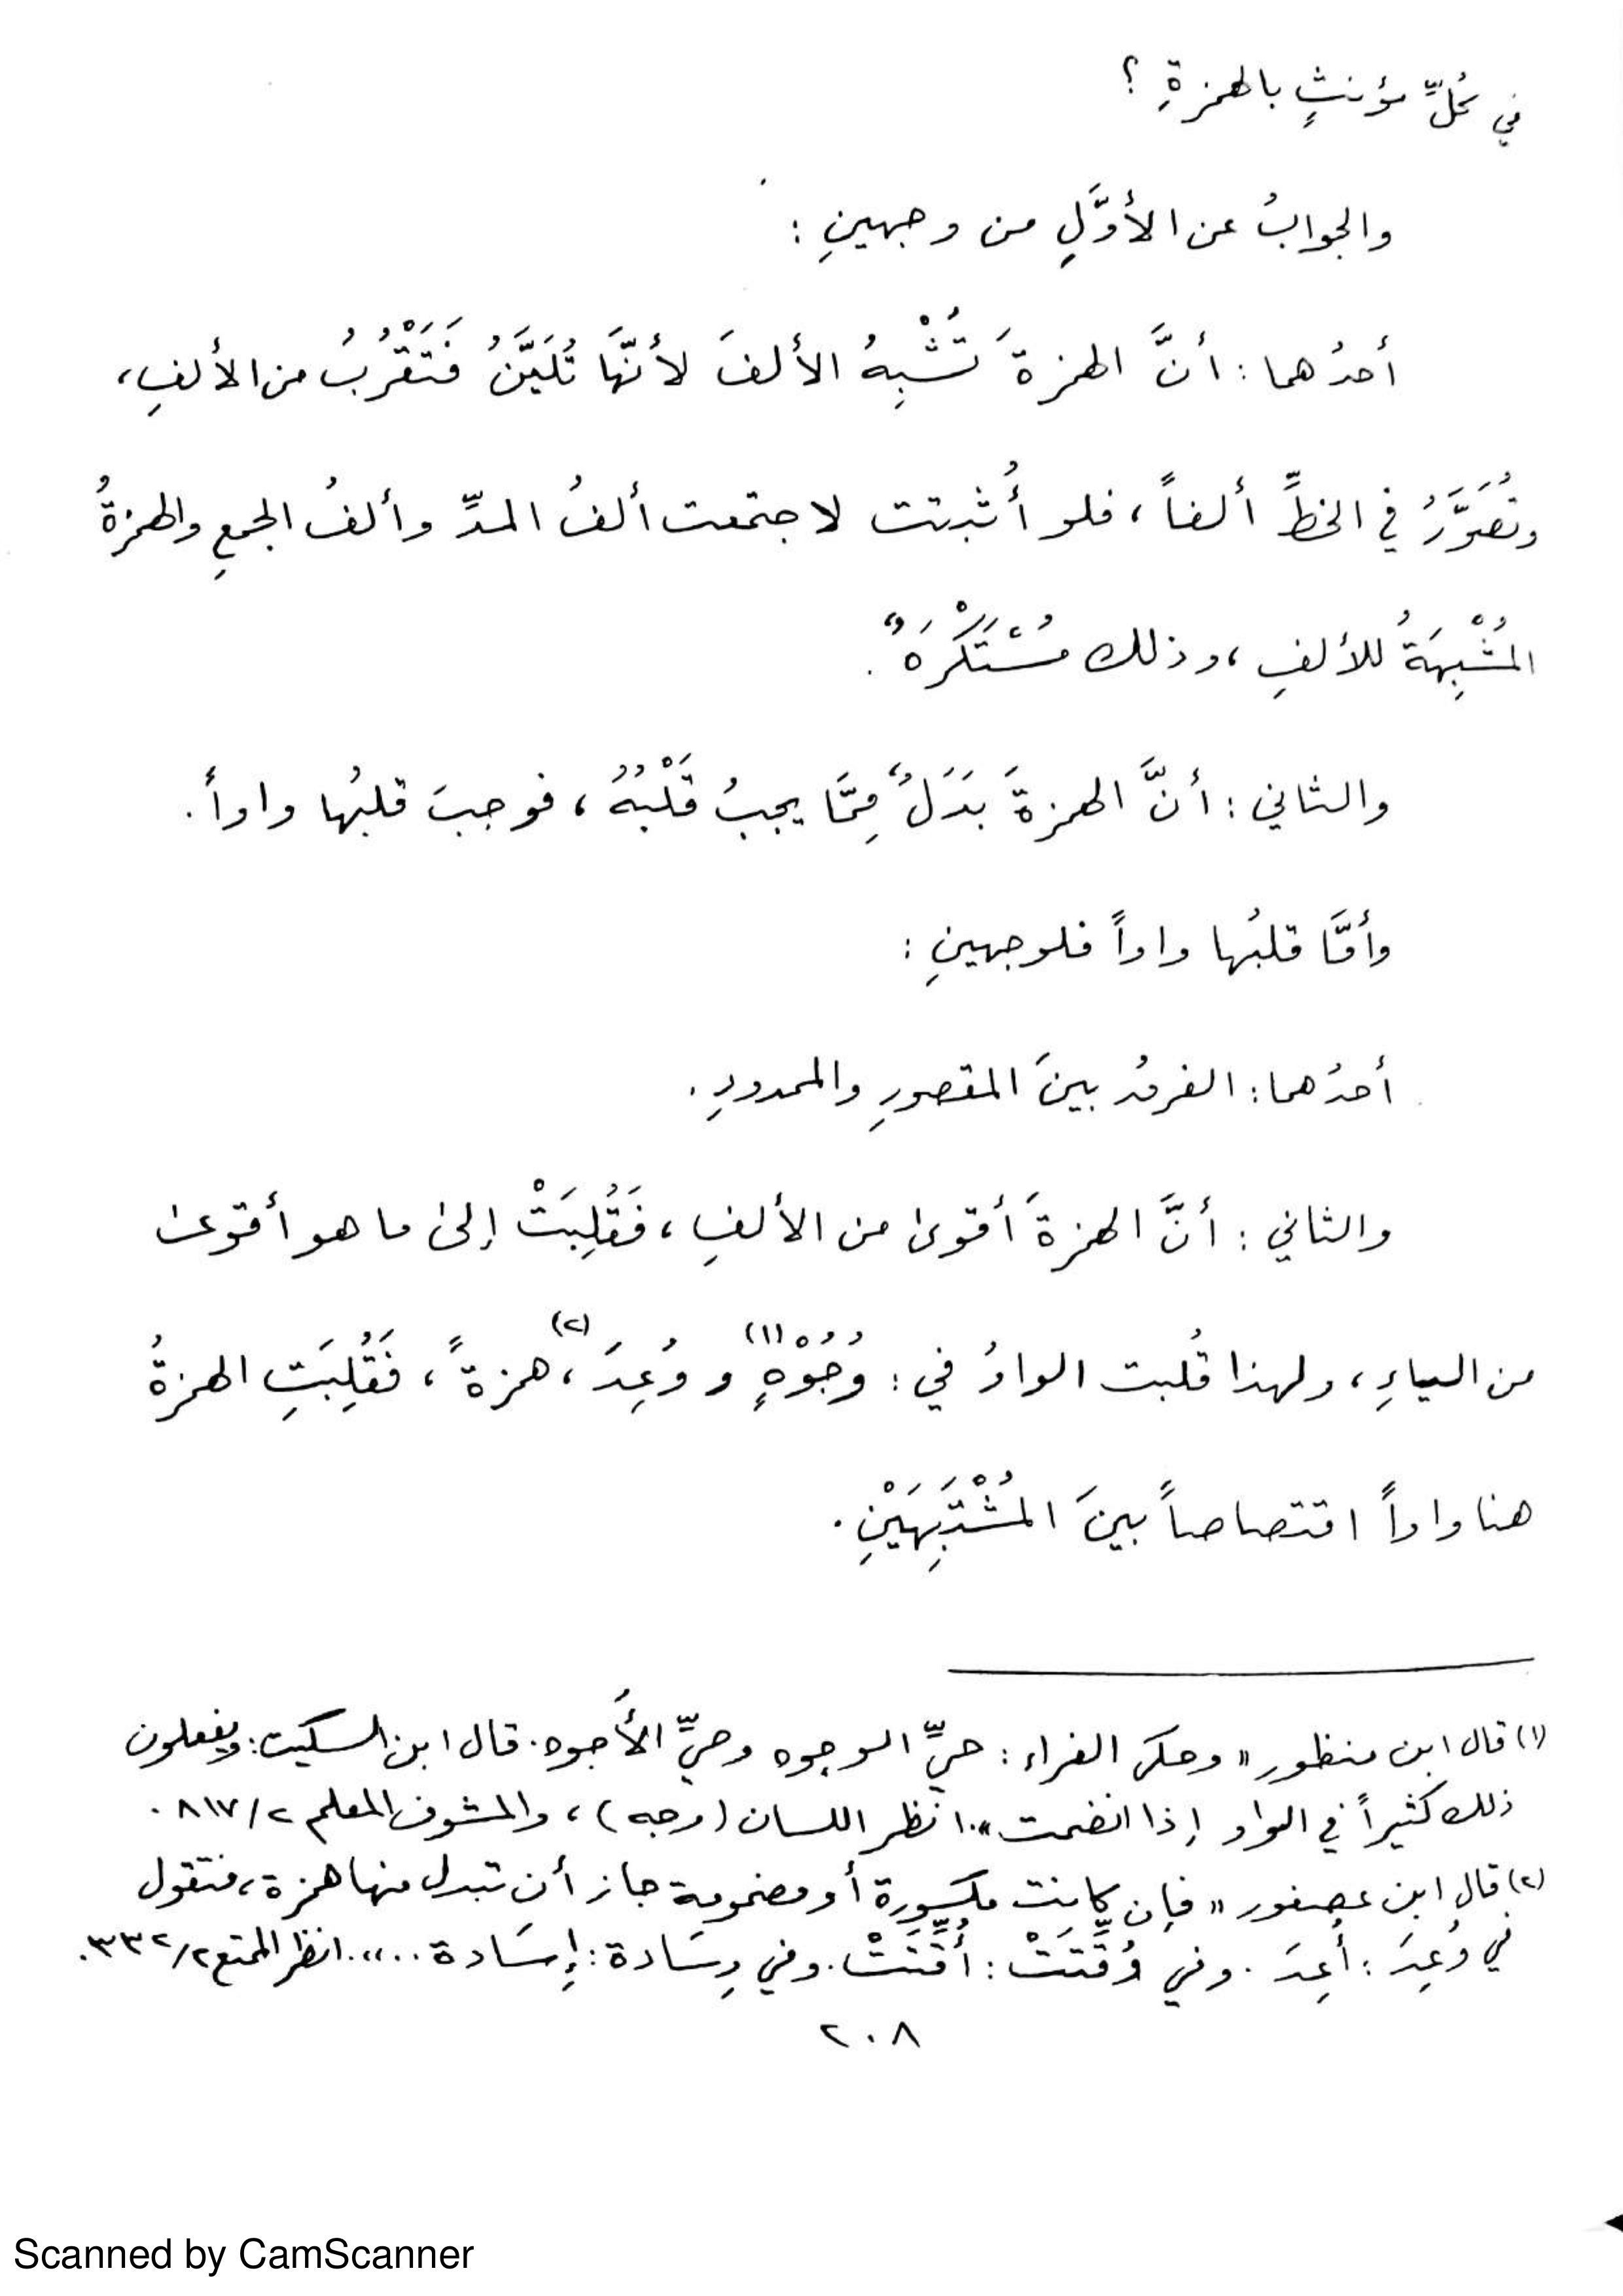 في كُلِّ مؤنثٍ بالهمزةِ ؟
والجوابُ عن الأوَّلِ من وجهينِ :
أحدُهما : أنَّ الهمزةَ تُشْبِهُ الألفَ لأنَّهَا تُلَيَّنُ فَتَقْرُبُ من الألفِ،
وتُصَوَّرُ في الخطِّ ألفاً ، فلو أُثبتت لاجتمعت ألفُ المدِّ وألفُ الجمعِ والهمزةُ
المُشْبِهَةُ للألفِ ، وذلك مُسْتَكْرَهٌ .
والثاني : أنَّ الهمزةَ بَدَلٌ مِمَّا يجبُ قَلْبُهُ ، فوجبَ قلبُها واواً .
وأمَّا قلبُها واواً فلوجهينِ :
أحدُهما : الفرقُ بينَ المقصورِ والممدودِ .
والثاني : أنَّ الهمزةَ أقوىٰ من الألفِ ، فَقُلِبَتْ إلىٰ ما هو أقوىٰ
من الياءِ ، ولهذا قُلبت الواوُ في : وُجُوْهٍ (١) و وُعِدَ (٢) ، همزةً ، فَقُلِبَتِ الهمزةُ
هنا واواً اقتصاصاً بينَ المُشْتَبِهَيْنِ .
(١) قال ابن منظور « وحكى الفراء : حيِّ الوجوه وحيِّ الأُجوه . قال ابن السكيت : ويفعلون
ذلك كثيراً في الواو إذا انضمت » . انظر اللسان (وجه) ، والمشوف المعلم ٢/ ٨١٧ .
(٢) قال ابن عصفور « فإن كانت مكسورة أو مضمومة جاز أن تبدل منها همزة ، فتقول
في وُعِدَ : أُعِدَ . وفي وُقِّتَتْ : أُقِّتَتْ . وفي وِسَادة : إِسَادة ... » . انظر الممتع ٢/ ٣٣٢ .
٢٠٨
Scanned by CamScanner